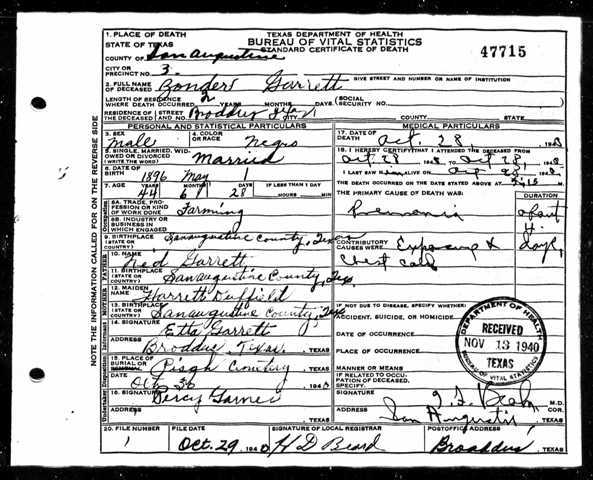 1. PLACE OF DEATH
STATE OF TEXAS
COUNTY OF San Augustine
CITY OR PRECINCT NO. 3.
TEXAS DEPARTMENT OF HEALTH
BUREAU OF VITAL STATISTICS
STANDARD CERTIFICATE OF DEATH
47715
GIVE STREET AND NUMBER OR NAME OF INSTITUTION
2. FULL NAME OF DECEASED Zonder Garrett
LENGTH OF RESIDENCE WHERE DEATH OCCURRED YEARS MONTHS DAYS
SOCIAL SECURITY NO.
RESIDENCE OF THE DECEASED STREET AND NO. Broddus Tex CITY COUNTY STATE
PERSONAL AND STATISTICAL PARTICULARS
3. SEX male
4. COLOR OR RACE Negro
5. SINGLE, MARRIED, WIDOWED OR DIVORCED (WRITE THE WORD) Married
6. DATE OF BIRTH 1896 May 1
7. AGE YEARS MONTHS DAYS IF LESS THAN 1 DAY
44 28 HOURS MIN.
8A. TRADE, PROFESSION OR KIND OF WORK DONE Farming
8B. INDUSTRY OR BUSINESS IN WHICH ENGAGED
9. BIRTHPLACE (STATE OR COUNTRY) Sanaugustine County, Texas
10. NAME Ned Garrett
11. BIRTHPLACE (STATE OR COUNTRY) Sanaugustine County, Tex
12. MAIDEN NAME Harrett Duffield
13. BIRTHPLACE (STATE OR COUNTRY) Sanaugustine County, Tex
14. SIGNATURE Etta Garrett
ADDRESS Broddus, Texas. TEXAS
15. PLACE OF BURIAL OR Pisgh Cemetery TEXAS
DATE Oct 30 1940
16. SIGNATURE Percy Garner
ADDRESS , TEXAS
MEDICAL PARTICULARS
17. DATE OF DEATH Oct. 28 1940
18. I HEREBY CERTIFY THAT I ATTENDED THE DECEASED FROM
Oct. 28 1940 TO Oct 28, 1940
I LAST SAW ALIVE ON
THE DEATH OCCURRED ON THE DATE STATED ABOVE AT
THE PRIMARY CAUSE OF DEATH WAS:
DURATION
Pneumonia
CONTRIBUTORY CAUSES WERE: Exposure &
Chest cold
days
IF NOT DUE TO DISEASE, SPECIFY WHETHER:
ACCIDENT, SUICIDE, OR HOMICIDE.
DATE OF OCCURRENCE
PLACE OF OCCURRENCE
MANNER OR MEANS
IF RELATED TO OCCUPATION OF DECEASED, SPECIFY.
SIGNATURE M.D. COR.
ADDRESS San Augustine , TEXAS
DEPARTMENT OF HEALTH
RECEIVED
NOV 13 1940
TEXAS
BUREAU OF VITAL STATISTICS
20. FILE NUMBER 1
FILE DATE Oct. 29 1940
SIGNATURE OF LOCAL REGISTRAR H D Beard
POSTOFFICE ADDRESS Broaddus , TEXAS
NOTE THE INFORMATION CALLED FOR ON THE REVERSE SIDE
Occupation
FATHER
MOTHER
Informant
Undertaker Disposition